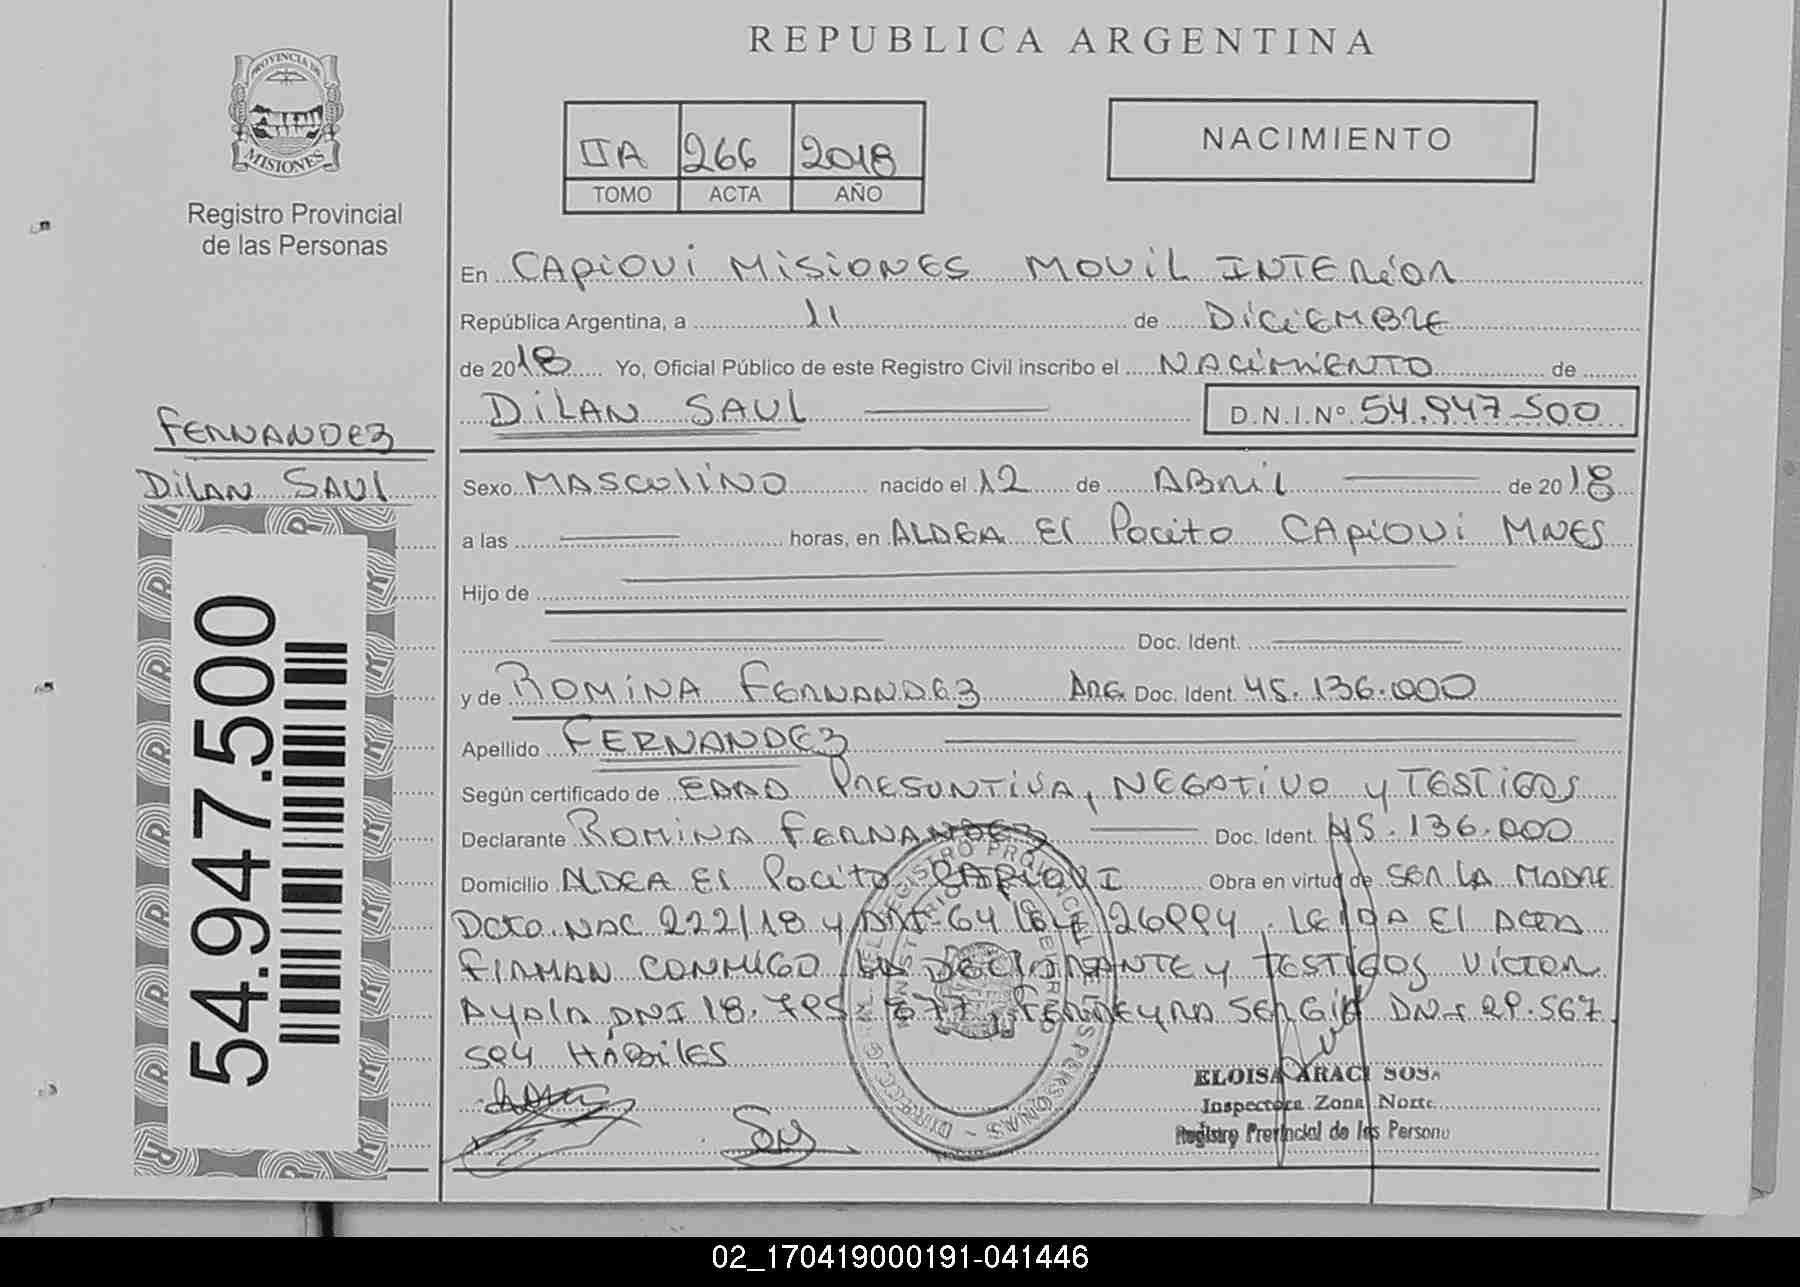 REPUBLICA ARGENTINA
PROVINCIA DE
MISIONES
Registro Provincial
de las Personas
IIA 266 2018
TOMO ACTA AÑO
NACIMIENTO
En CAPIOVI MISIONES MOVIL INTERIOR
República Argentina, a 11 de DICIEMBRE
de 2018 Yo, Oficial Público de este Registro Civil inscribo el NACIMIENTO de
DILAN SAUL D.N.I.Nº 54.947.500
FERNANDEZ
DILAN SAUL
54.947.500
Sexo MASCULINO nacido el 12 de ABRIL de 2018
a las horas, en ALDEA El Pocito CAPIOVI MNES
Hijo de
Doc. Ident.
y de ROMINA FERNANDEZ ARG. Doc. Ident. 45.136.000
Apellido FERNANDEZ
Según certificado de EDAD PRESUNTIVA, NEGATIVO y TESTIGOS
Declarante ROMINA FERNANDEZ Doc. Ident. 45.136.000
Domicilio ALDEA El Pocito CAPIOVI Obra en virtud de SER LA MADRE
DCTO. NAC 222/18 y 26994. LEIDA El ACTA
FIRMAN CONMIGO LA DECLARANTE y TESTIGOS VICTOR
Ayala DNI 18.795.677, FERREYRA SERGIO DNI 29.567
504 HABILES
ELOISA ARACI SOSA
Inspectora Zona Norte
Registro Provincial de las Personas
02_170419000191-041446